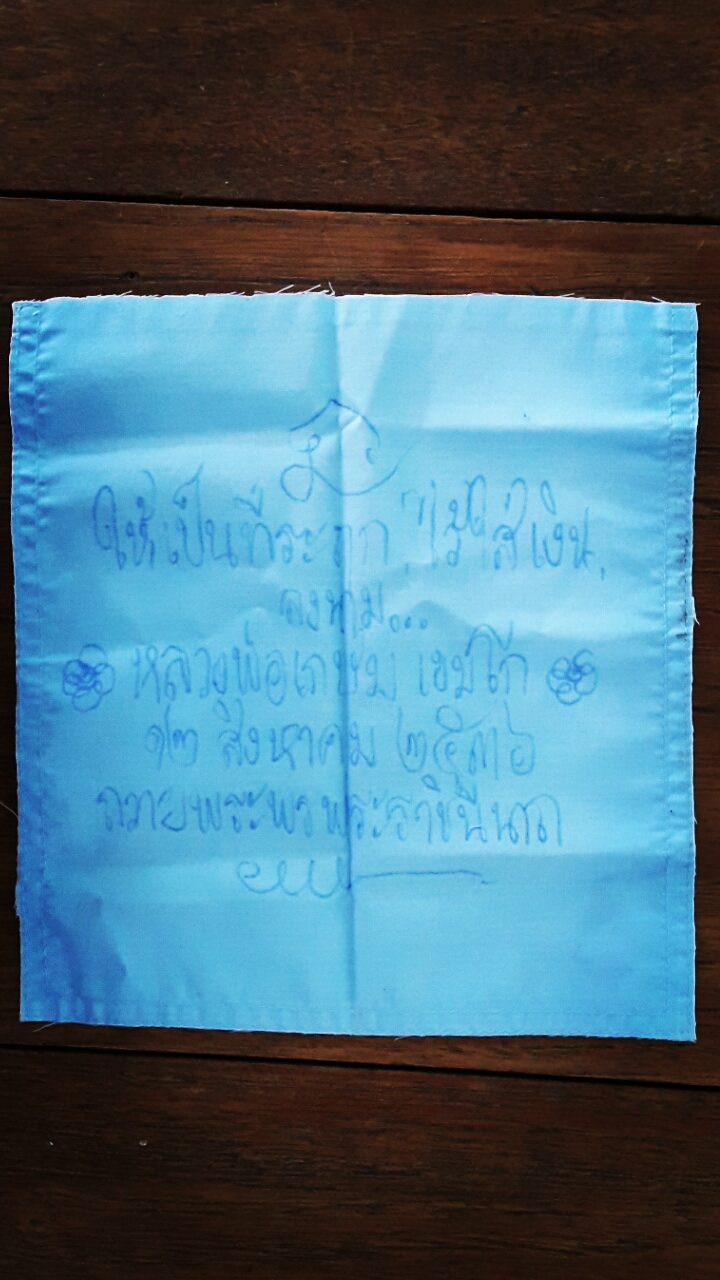 ให้เป็นที่ระฤก, ไว้ใส่เงิน,
ลงนาม...
หลวงพ่อเกษม เขมโก
๑๒ สิงหาคม ๒๕๓๖
ถวายพระพรพระราชินีนาถ